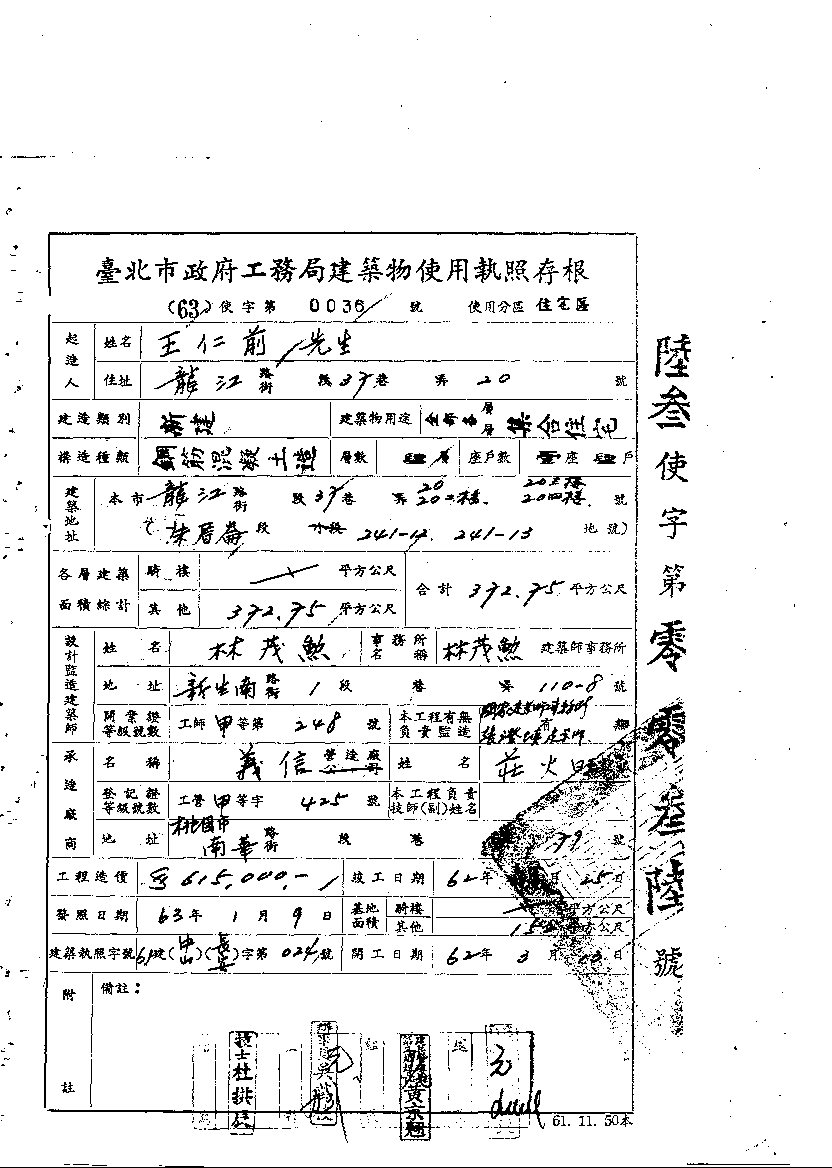 臺北市政府工務局建築物使用執照存根
(63)使字第 0036 號 使用分區 住宅區
起造人 姓名 王仁前 先生
住址 龍江 路街 段 37 巷 弄 20 號
建造類別 新建 建築物用途 全部各層層 集合住宅
構造種類 鋼筋混凝土造 層數 肆層 座戶數 壹座 肆戶
建築地址 本市 龍江 路街 段 37 巷 弄 20 20二樓 20三樓 20四樓 號
(朱厝崙 段 小段 241-12、241-13 地號)
各層建築面積綜計 騎樓 平方公尺 合計 392.75 平方公尺
其他 392.75 平方公尺
設計監造建築師 姓名 林茂勲 事務所名稱 林茂勲 建築師事務所
地址 新生南 路街 1 段 巷 弄 110-8 號
開業證等級號數 工師甲等第 248 號 本工程有無負責監造 有
承造廠商 名稱 義信 營造廠公司 姓名 莊火旺
登記證等級號數 工營甲等字 425 號 本工程負責技師(副)姓名
地址 桃園市南華 路街 段 巷 79 號
工程造價 615,000.- 竣工日期 62年 月 25日
發照日期 63年 1月 9日 基地面積 騎樓 平方公尺
其他 平方公尺
建築執照字號 61建(中山)(長安)字第 024 號 開工日期 62年 3月 03日
附註 備註：
技士杜排
61. 11. 50本
陸叁使字第零零叁陸號